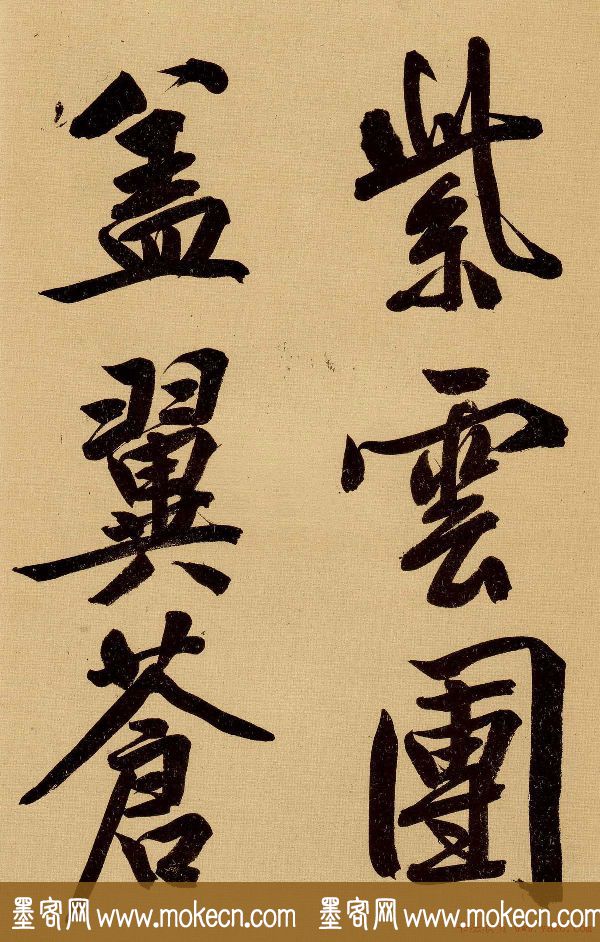 紫雲團
盖翼蒼
墨客网 www.mokecn.com 墨客网 www.mokecn.com